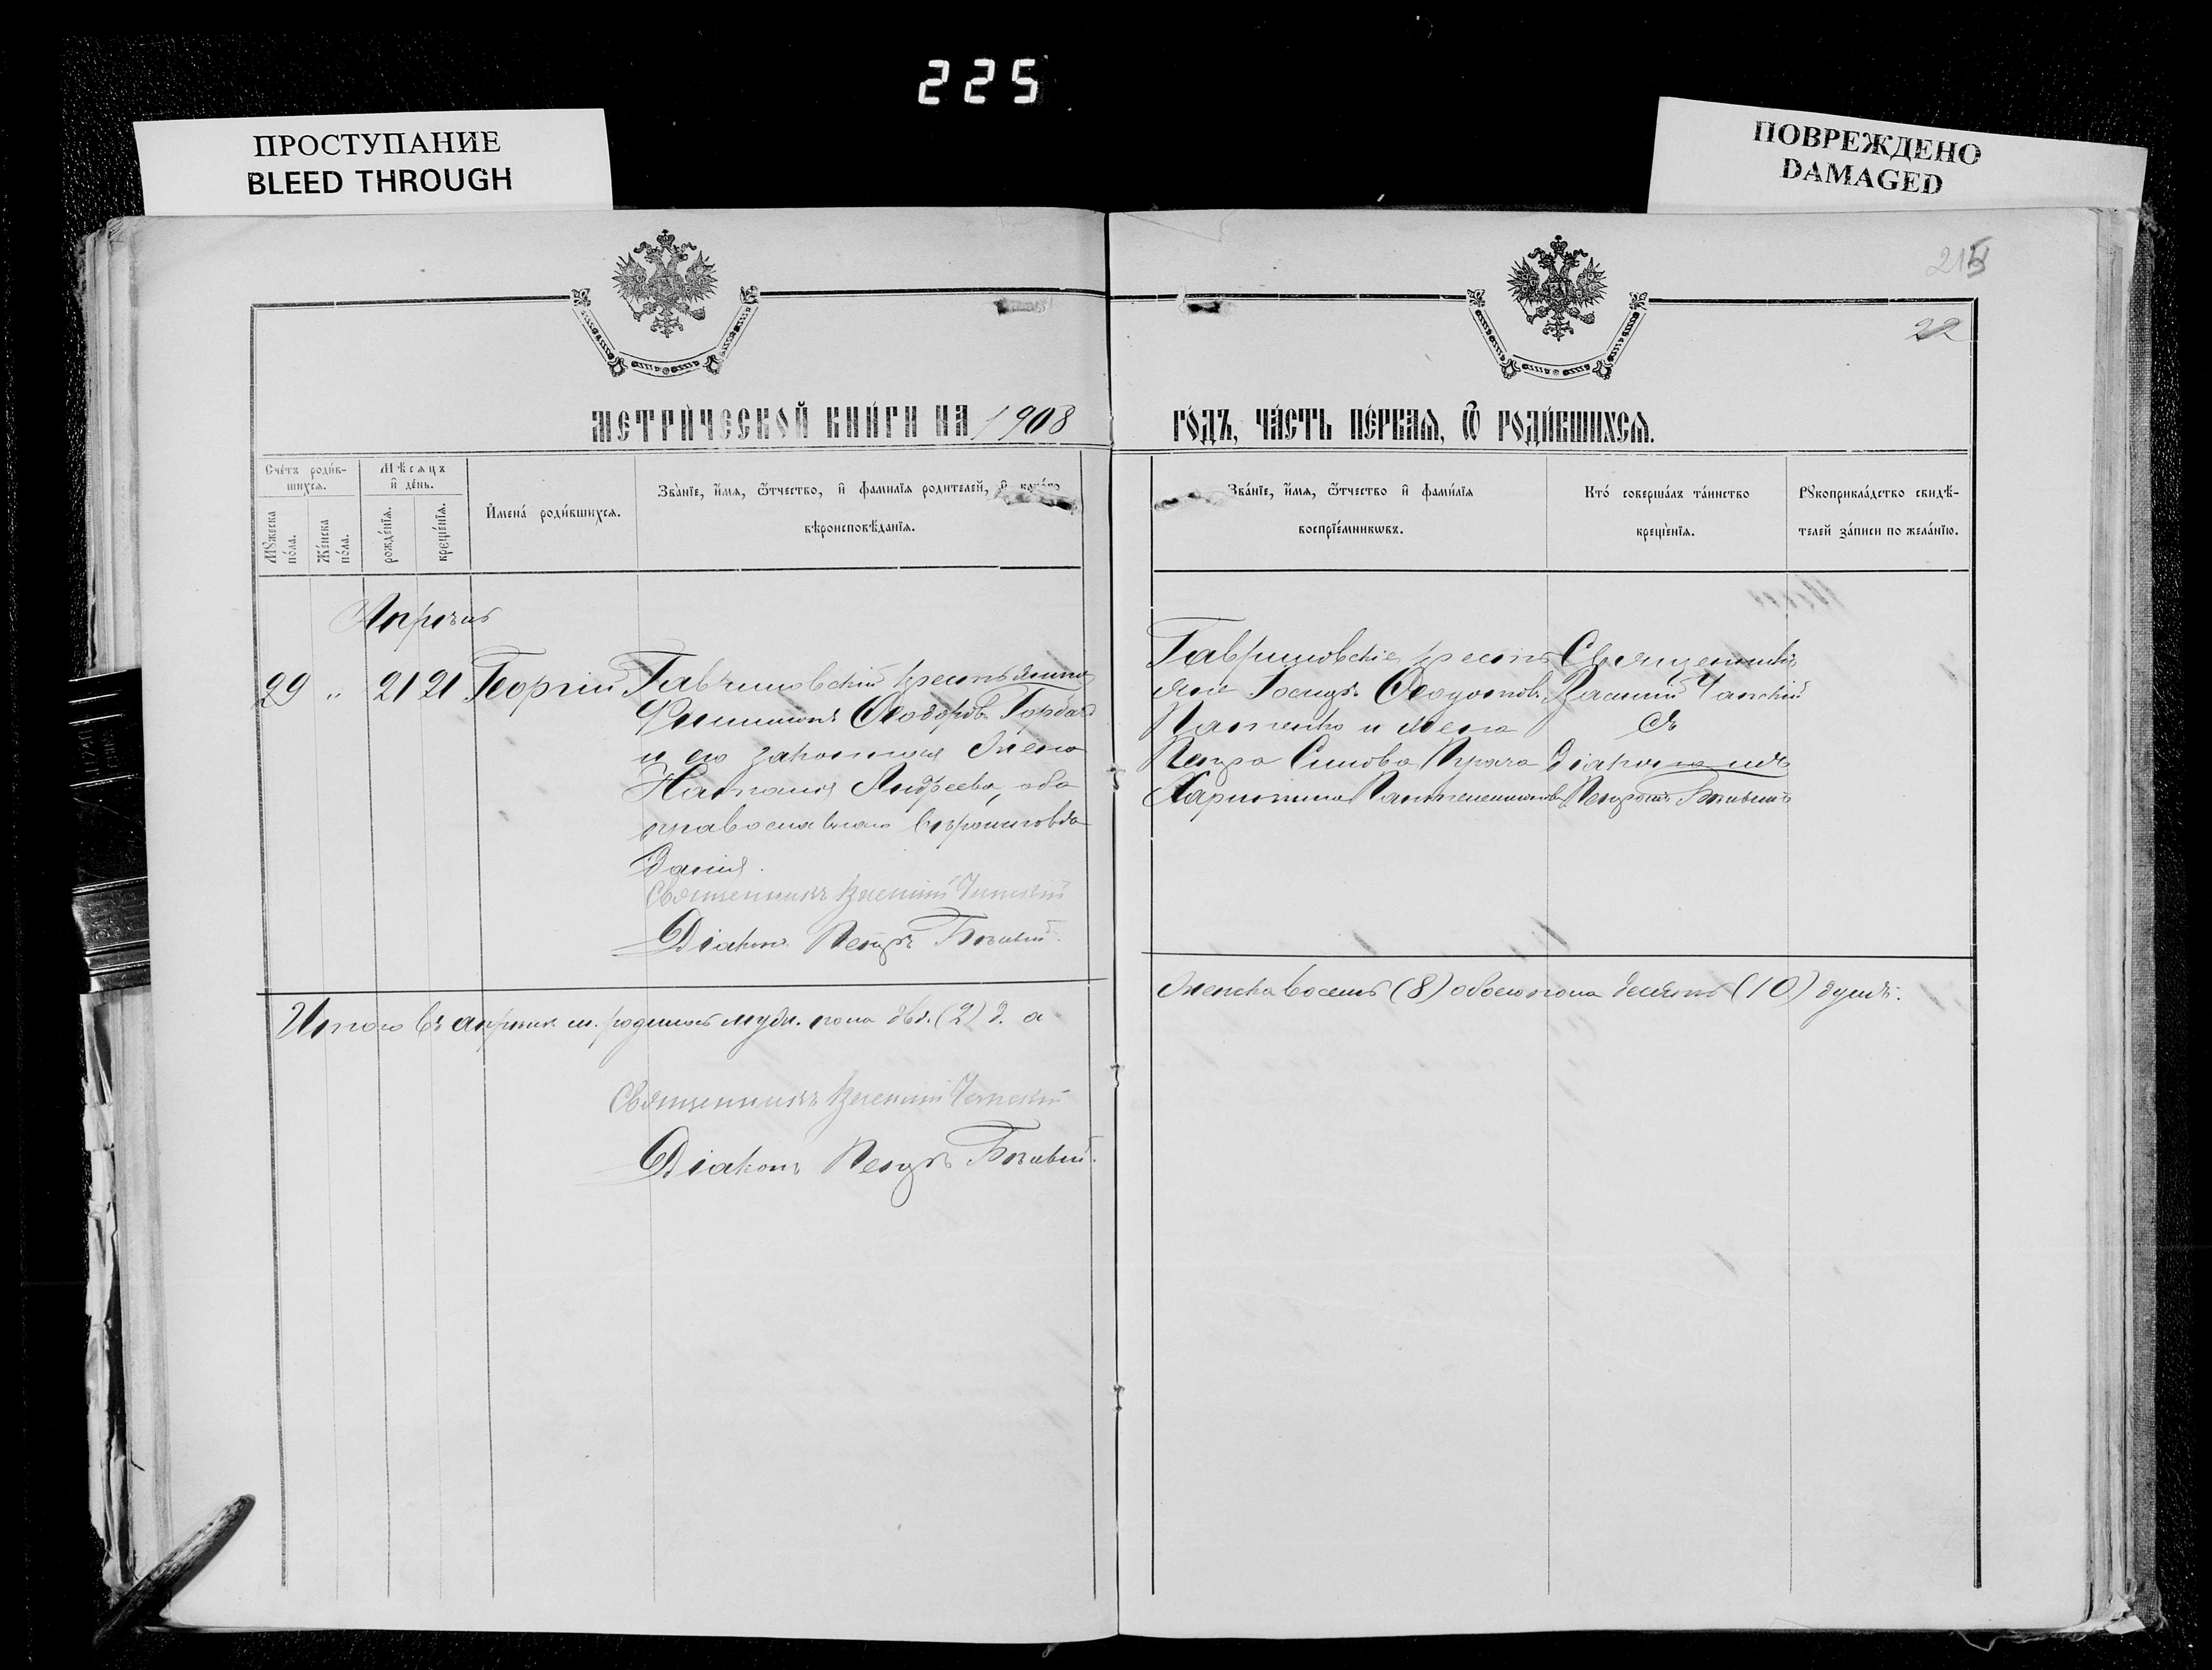 225
ПРОСТУПАНИЕ
BLEED THROUGH
ПОВРЕЖДЕНО
DAMAGED
215
22
МЕТРИ́ЧЕСКОЙ КНИ́ГИ НА 1908
ГО́ДЪ, ЧА́СТЬ ПЕ́РВАЯ, Ѿ РОДИ́ВШИХСЯ.
Сче́тъ роди́в-
шихся.
Мꙋжеска по́ла.
Же́нска по́ла.
Мѣсяцъ и де́нь.
рожде́нїя.
креще́нїя.
Имена́ роди́вшихся.
Зва́нїе, и́мя, ѻ́тчество, и фамилїя родителей, и како́го
вѣроисповѣ́данїя.
Зва́нїе, и́мя, ѻ́тчество и фами́лїя
воспрїе́мникωвъ.
Кто́ соверша́лъ та́инство
креще́нїя.
Рꙋкоприкла́дство свидѣ́-
телей за́писи по жела́нїю.
Апрѣль
29 „ 21 21 Георгій
Гавриловскій крестьянинъ
Филиппъ Ѳеодоровъ Горбань
и его законная жена
Наталія Андреева, оба
православнаго вѣроисповѣ
данія.
Священникъ Василій Чапскій
Діаконъ Петръ
Гавриловскіе кресть
яне Ѳеодотовъ
и жена
Петра
Харитина
Священникъ
Василій Чапскій
съ
діакономъ
Петромъ
Итого въ апрѣлѣ м. родилось муж. пола два (2) д. а
женска восемь (8) обоего пола десять (10) душъ.
Священникъ Василій Чапскій
Діаконъ Петръ